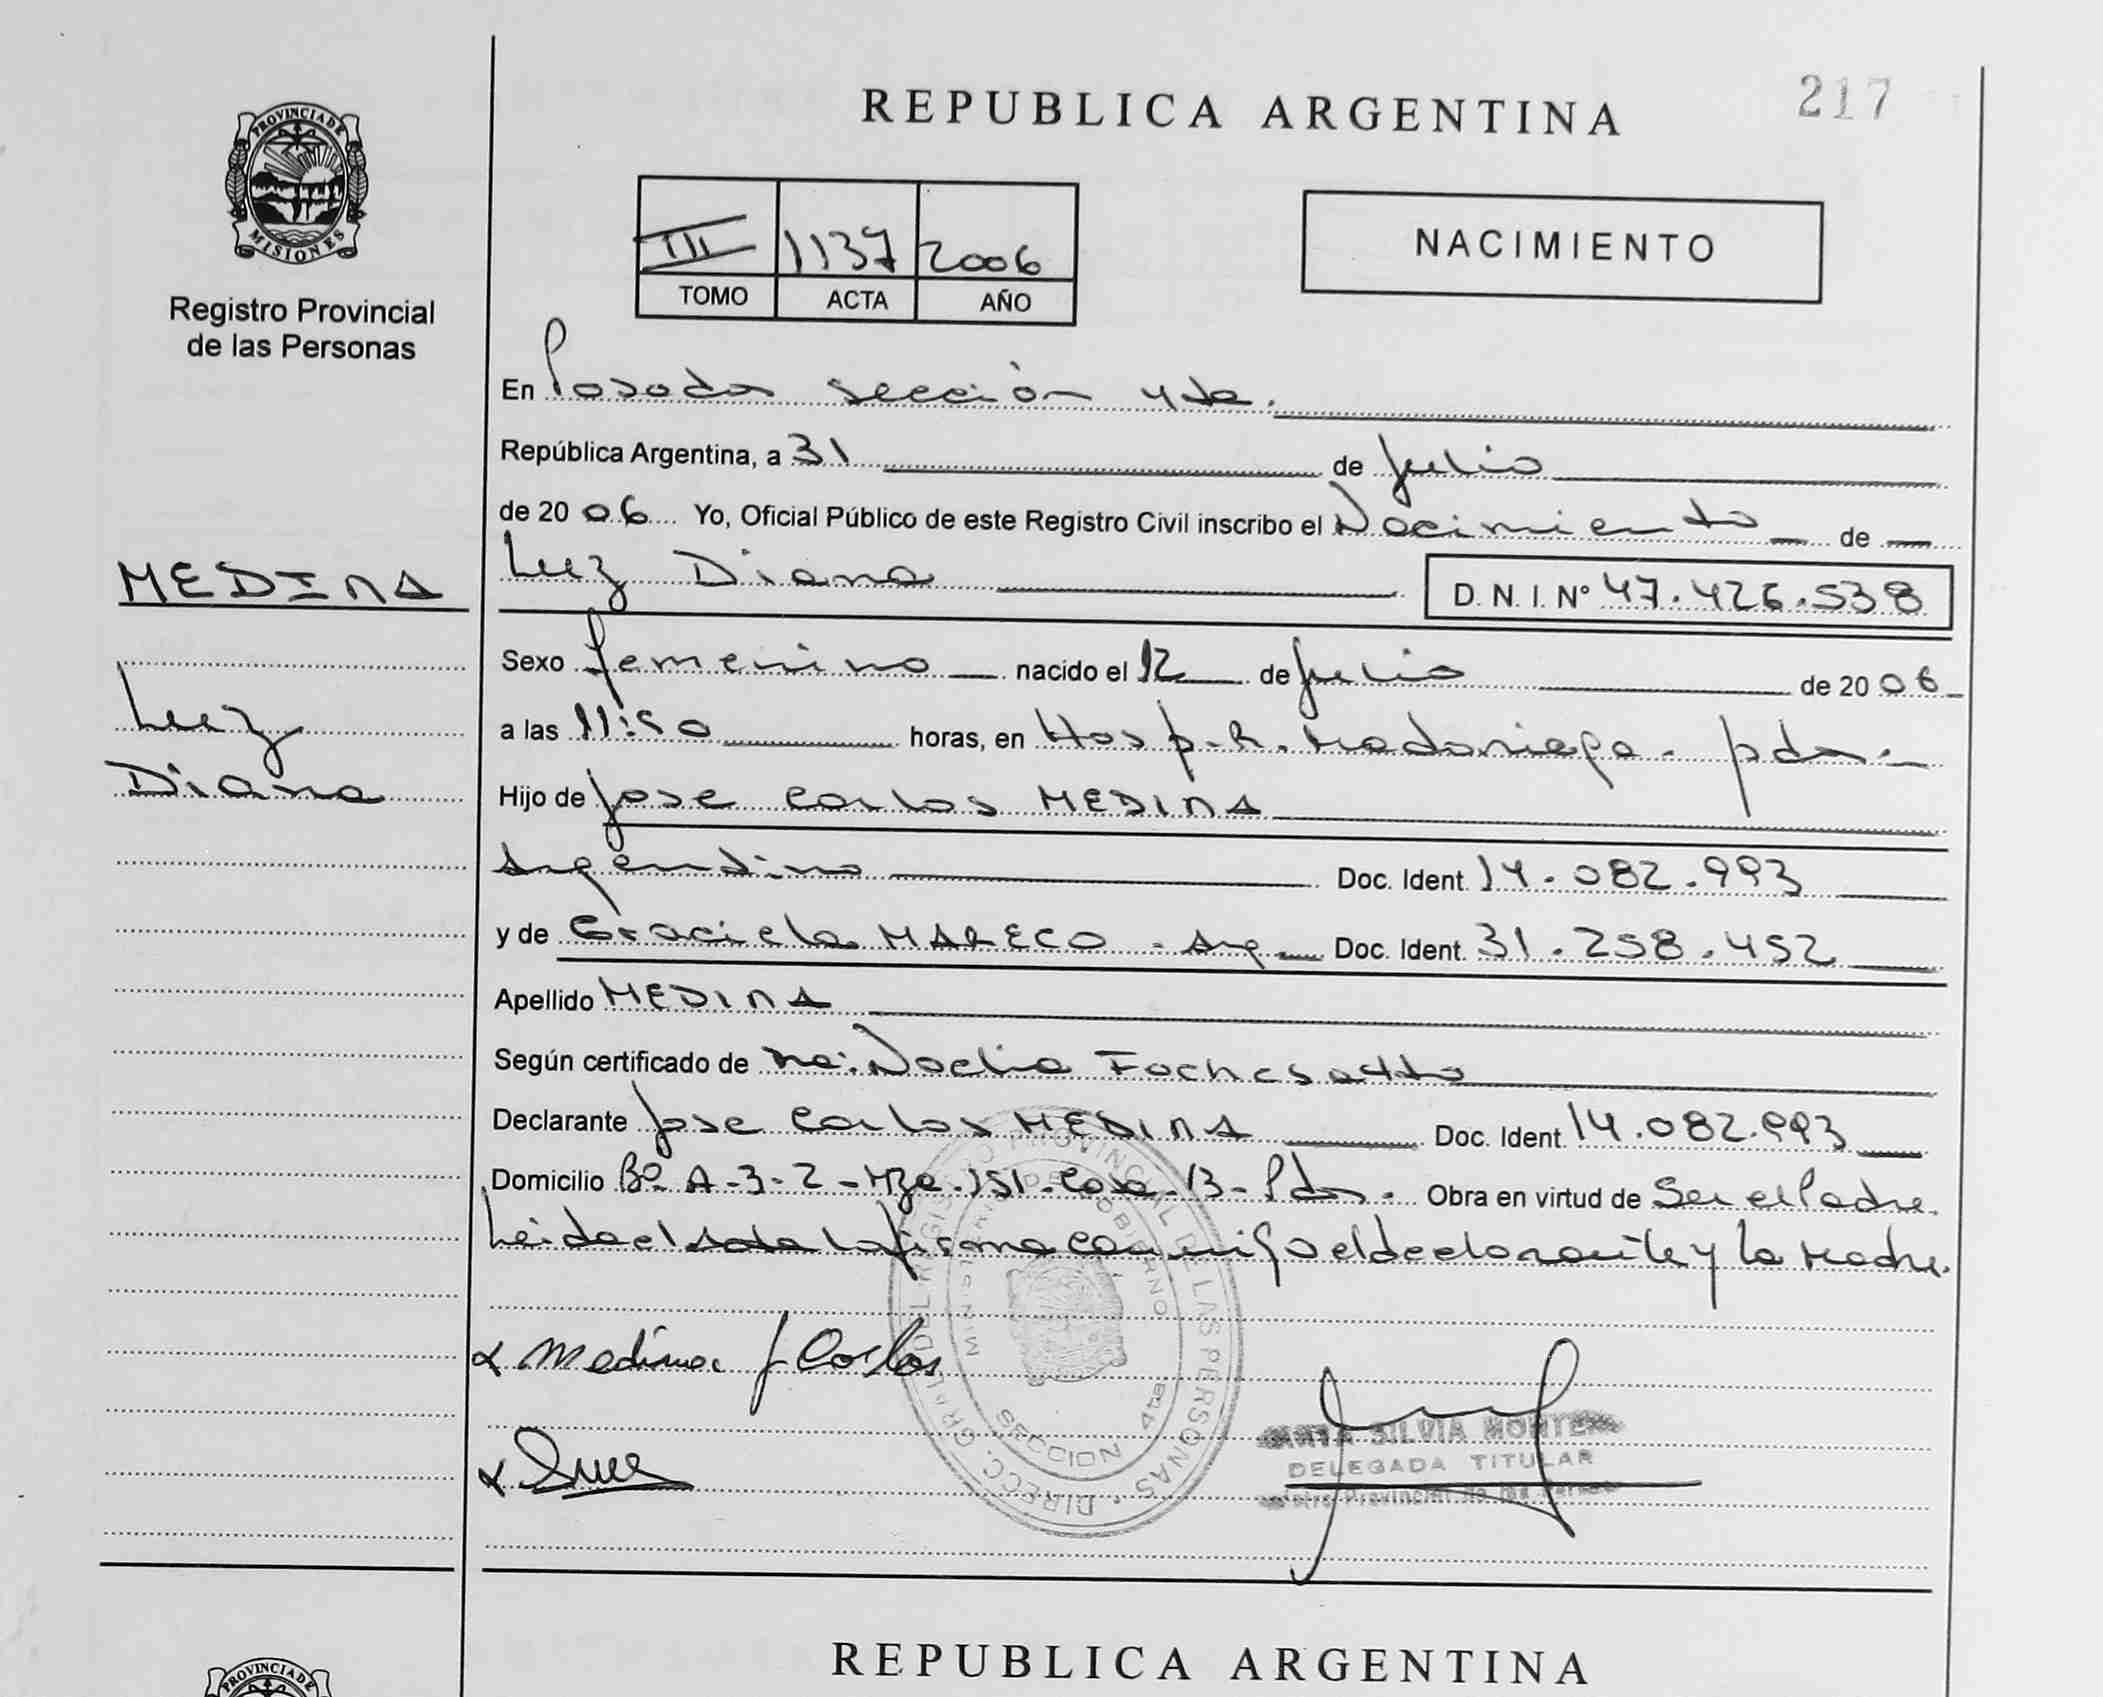 217
REPUBLICA ARGENTINA
PROVINCIA DE
MISIONES
Registro Provincial
de las Personas
III 1137 2006
TOMO ACTA AÑO
NACIMIENTO
En Posadas sección 4ta.
República Argentina, a 31 de Julio
de 20 06 Yo, Oficial Público de este Registro Civil inscribo el Nacimiento de
MEDINA
Luz Diana
D. N. I. Nº 47.426.538
Luz
Diana
Sexo Femenino nacido el 12 de Julio de 20 06
a las 11:50 horas, en Hosp. R. Madariaga - Pdas.
Hijo de Jose Carlos MEDINA
Argentino Doc. Ident. 14.082.993
y de Graciela MARECO - Arg. Doc. Ident. 31.258.452
Apellido MEDINA
Según certificado de Noelia Fochesatto
Declarante Jose Carlos MEDINA Doc. Ident. 14.082.993
Domicilio Bº A-3-2 - Mza. 151. Casa. 13 - Pdas. Obra en virtud de Ser el Padre.
Leida el acta la firma conmigo el declarante y la Madre.
Medina J Carlos
DIRECC. GRAL. DEL REGISTRO PROVINCIAL DE LAS PERSONAS
MINISTERIO DE GOBIERNO
SECCION 4ta
SILVIA
DELEGADA TITULAR
Provincial de las
REPUBLICA ARGENTINA
PROVINCIA DE